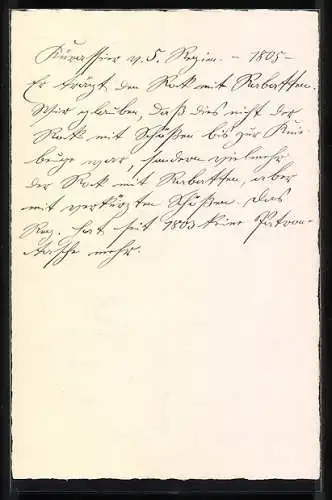 Kürassier v. 5. Regim. – 1805 –
Er trägt den Rock mit Rabatten.
Wir glauben, daß dies nicht der
Rock mit Schößen bis zur Knie-
beuge war, sondern vielmehr
der Rock mit Rabatten, aber
mit verkürzten Schößen. Das
Reg. hat seit 1803 keine Patron-
tasche mehr.